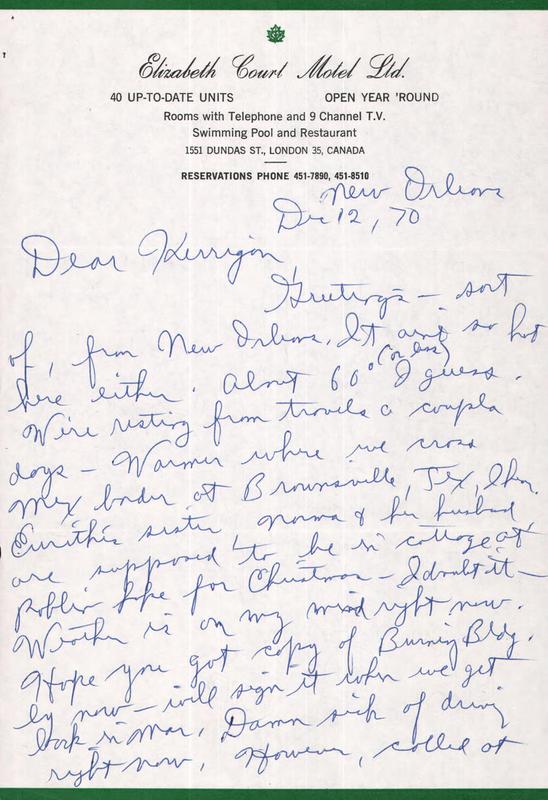 Elizabeth Court Motel Ltd.
40 UP-TO-DATE UNITS OPEN YEAR 'ROUND
Rooms with Telephone and 9 Channel T.V.
Swimming Pool and Restaurant
1551 DUNDAS ST., LONDON 35, CANADA
RESERVATIONS PHONE 451-7890, 451-8510
New Orleans
Dec 12, 70
Dear Kerrigan
Greetings - sort
of, from New Orleans. It ain't so hot
(or less)
here either. About 60° I guess.
We're resting from travels a coupla
days - Warmer where we cross
Mex border at Brownsville, Tex, I hear.
Eurithe's sister Norma & her husband
are supposed to be in cottage at
Roblin Lake for Christmas - I doubt it -
Weather is on my mind right now.
Hope you got copy of Burning Bldg.
by now - will sign it when we get
back in Mar. Damn sick of driving
right now. However, called at